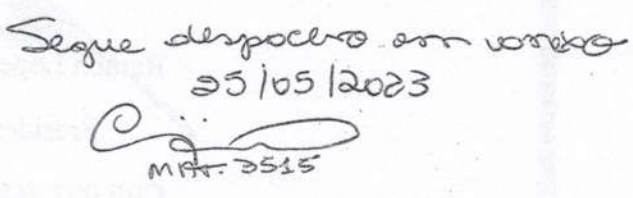 Segue despacho em anexo
25/05/2023
MAT. 3515